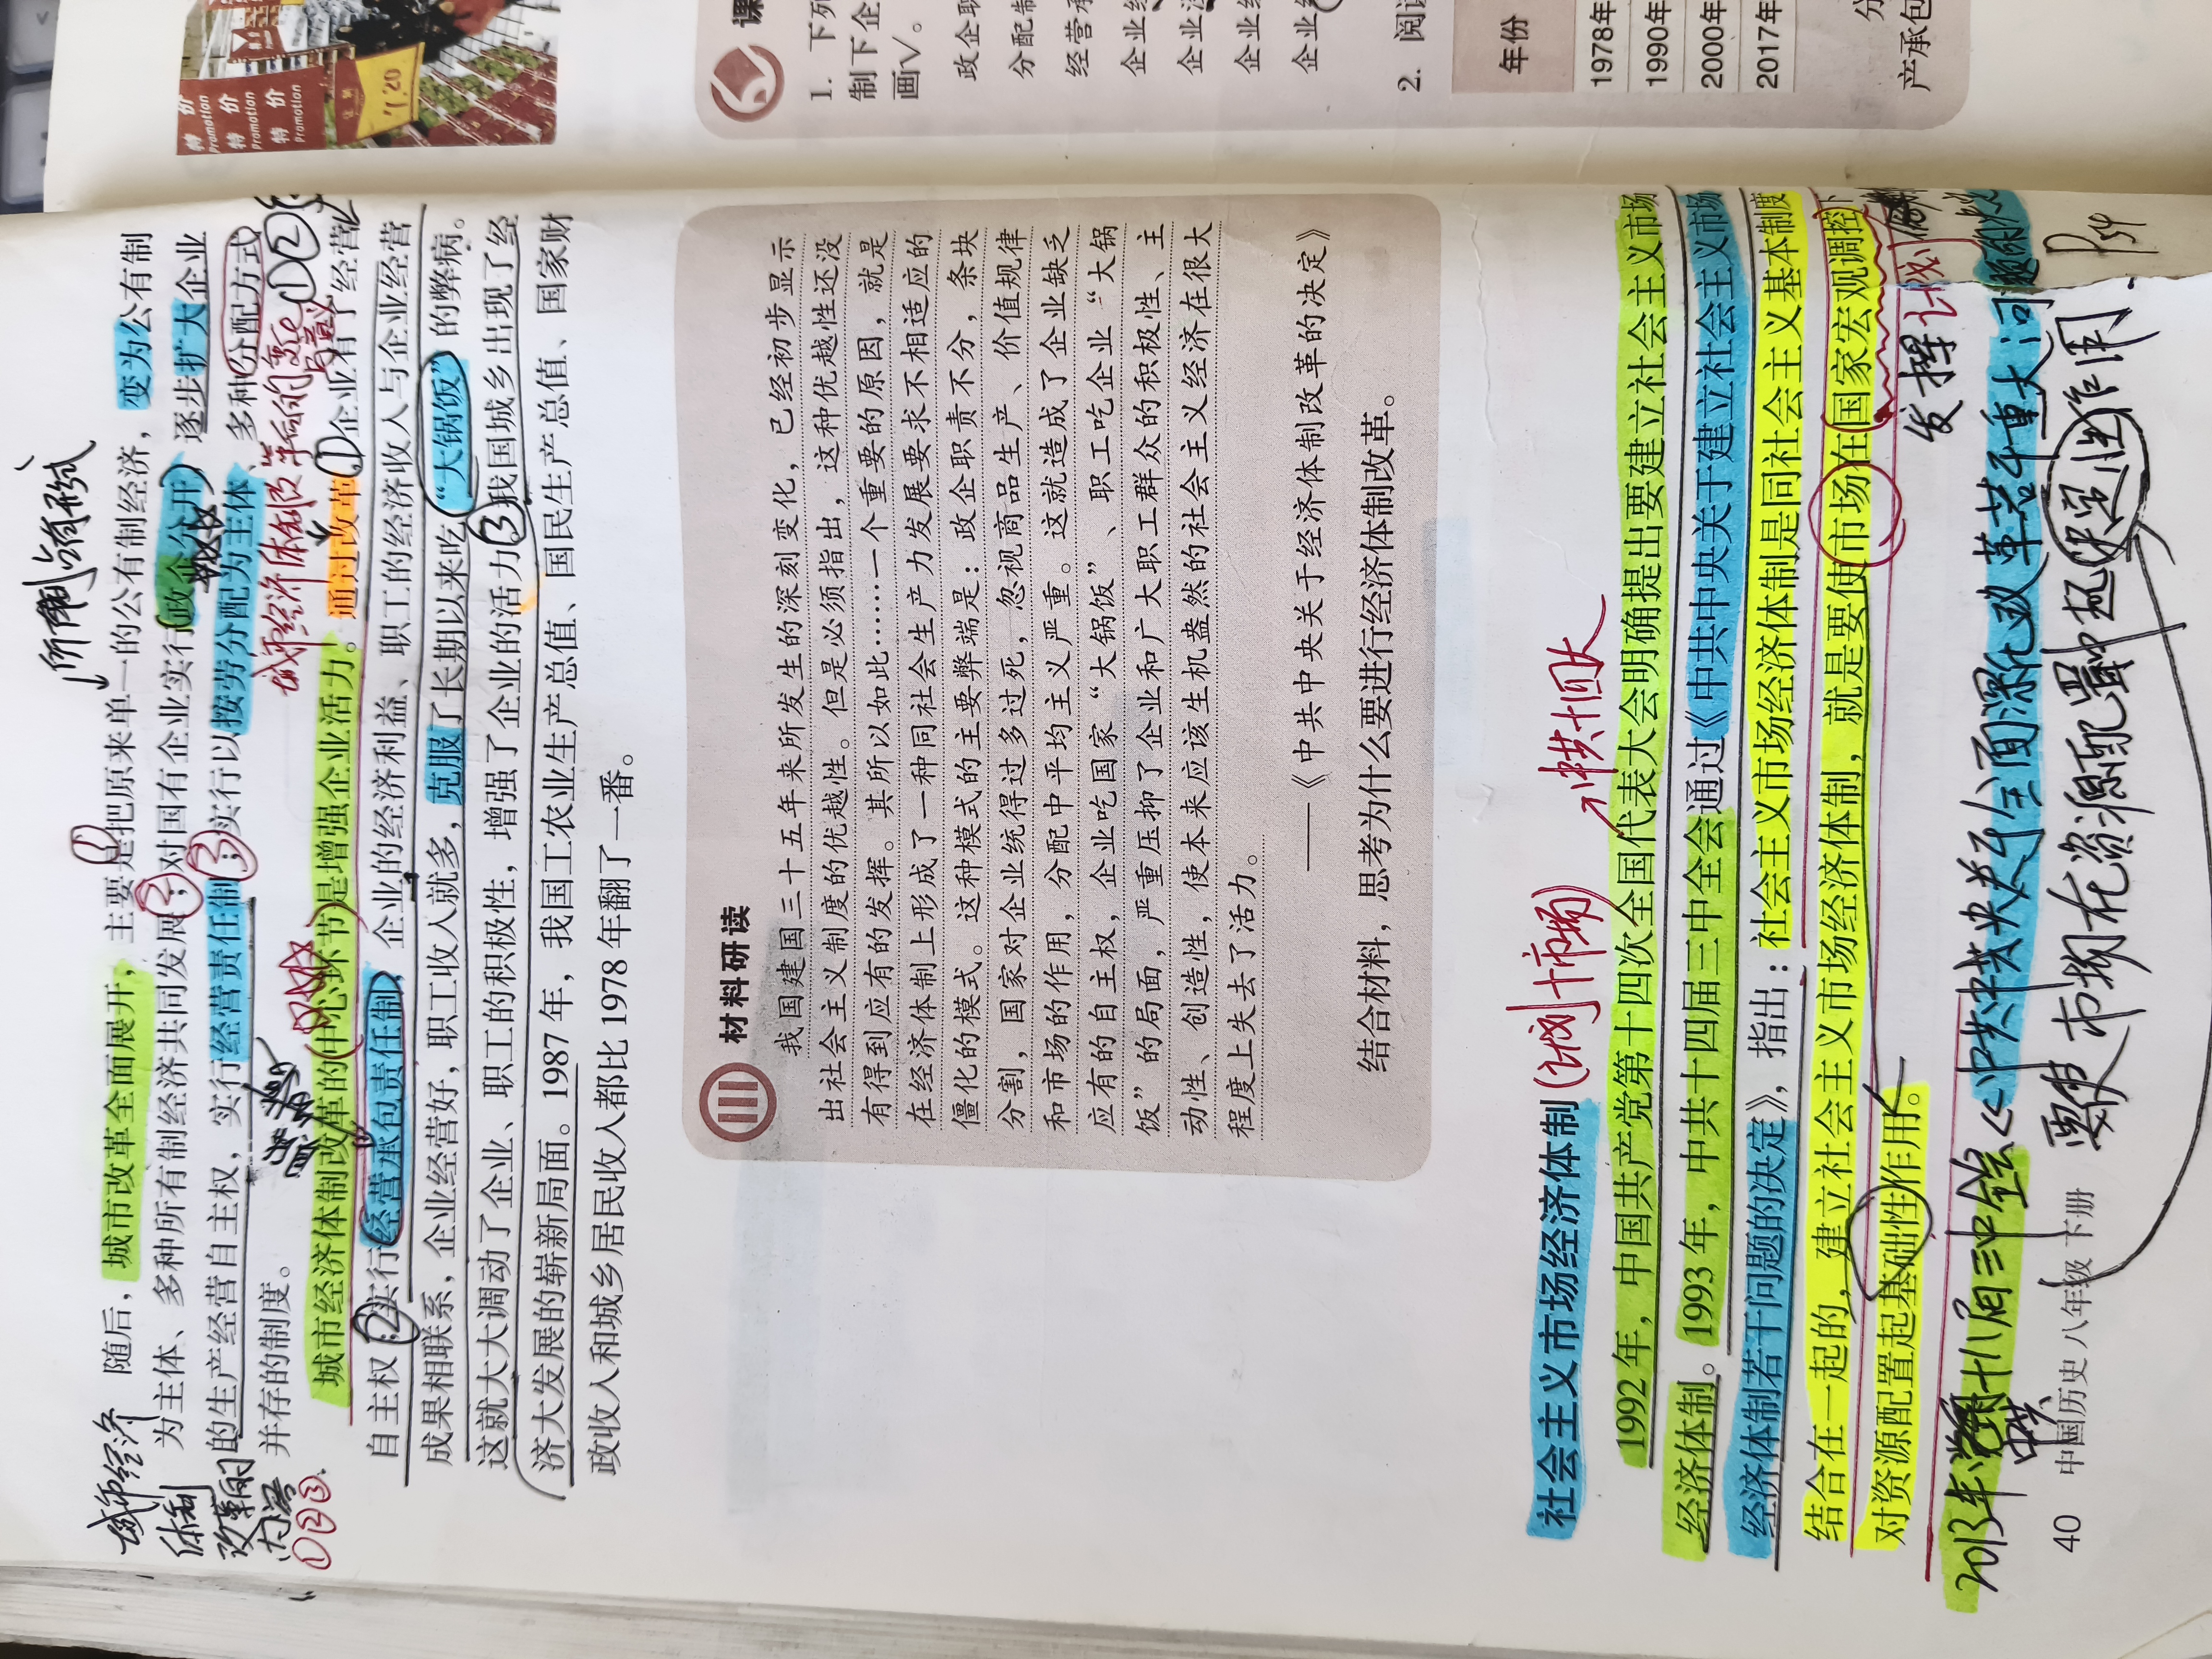 所有制形式
城市经济
体制
改革的
内容
①②③
随后，城市改革全面展开，主要是把原来单一的公有制经济，变为公有制
为主体、多种所有制经济共同发展；对国有企业实行政企分开，逐步扩大企业
的生产经营自主权，实行经营责任制；实行以按劳分配为主体、多种分配方式
并存的制度。
城市经济体制改革的
城市经济体制改革的中心环节是增强企业活力。通过改革，企业有了经营
自主权，实行经营承包责任制，企业的经济利益、职工的经济收入与企业经营
成果相联系，企业经营好，职工收入就多，克服了长期以来吃“大锅饭”的弊病。
这就大大调动了企业、职工的积极性，增强了企业的活力，我国城乡出现了经
济大发展的崭新局面。1987年，我国工农业生产总值、国民生产总值、国家财
政收入和城乡居民收入都比1978年翻了一番。
材料研读
我国建国三十五年来所发生的深刻变化，已经初步显示
出社会主义制度的优越性。但是必须指出，这种优越性还没
有得到应有的发挥。其所以如此……一个重要的原因，就是
在经济体制上形成了一种同社会生产力发展要求不相适应的
僵化的模式。这种模式的主要弊端是：政企职责不分，条块
分割，国家对企业统得过多过死，忽视商品生产、价值规律
和市场的作用，分配中平均主义严重。这就造成了企业缺乏
应有的自主权，企业吃国家“大锅饭”、职工吃企业“大锅
饭”的局面，严重压抑了企业和广大职工群众的积极性、主
动性、创造性，使本来应该生机盎然的社会主义经济在很大
程度上失去了活力。
——《中共中央关于经济体制改革的决定》
结合材料，思考为什么要进行经济体制改革。
社会主义市场经济体制（计划+市场）
中共十四大
1992年，中国共产党第十四次全国代表大会明确提出要建立社会主义市场
经济体制。1993年，中共十四届三中全会通过《中共中央关于建立社会主义市场
经济体制若干问题的决定》，指出：社会主义市场经济体制是同社会主义基本制度
结合在一起的，建立社会主义市场经济体制，就是要使市场在国家宏观调控下
对资源配置起基础性作用。
发挥计划
2013年中共十八届三中全会《中共中央关于全面深化改革若干重大问
要使市场在资源配置中起决定性作用
P54
40 中国历史 八年级 下册
特价
Promotion
特价
Promotion
特价
Promotion
1.20
课
1. 下列
制下企
画√。
政企职
分配制
经营承
2. 阅读
年份
1978年
1990年
2000年
2017年
分
产承包